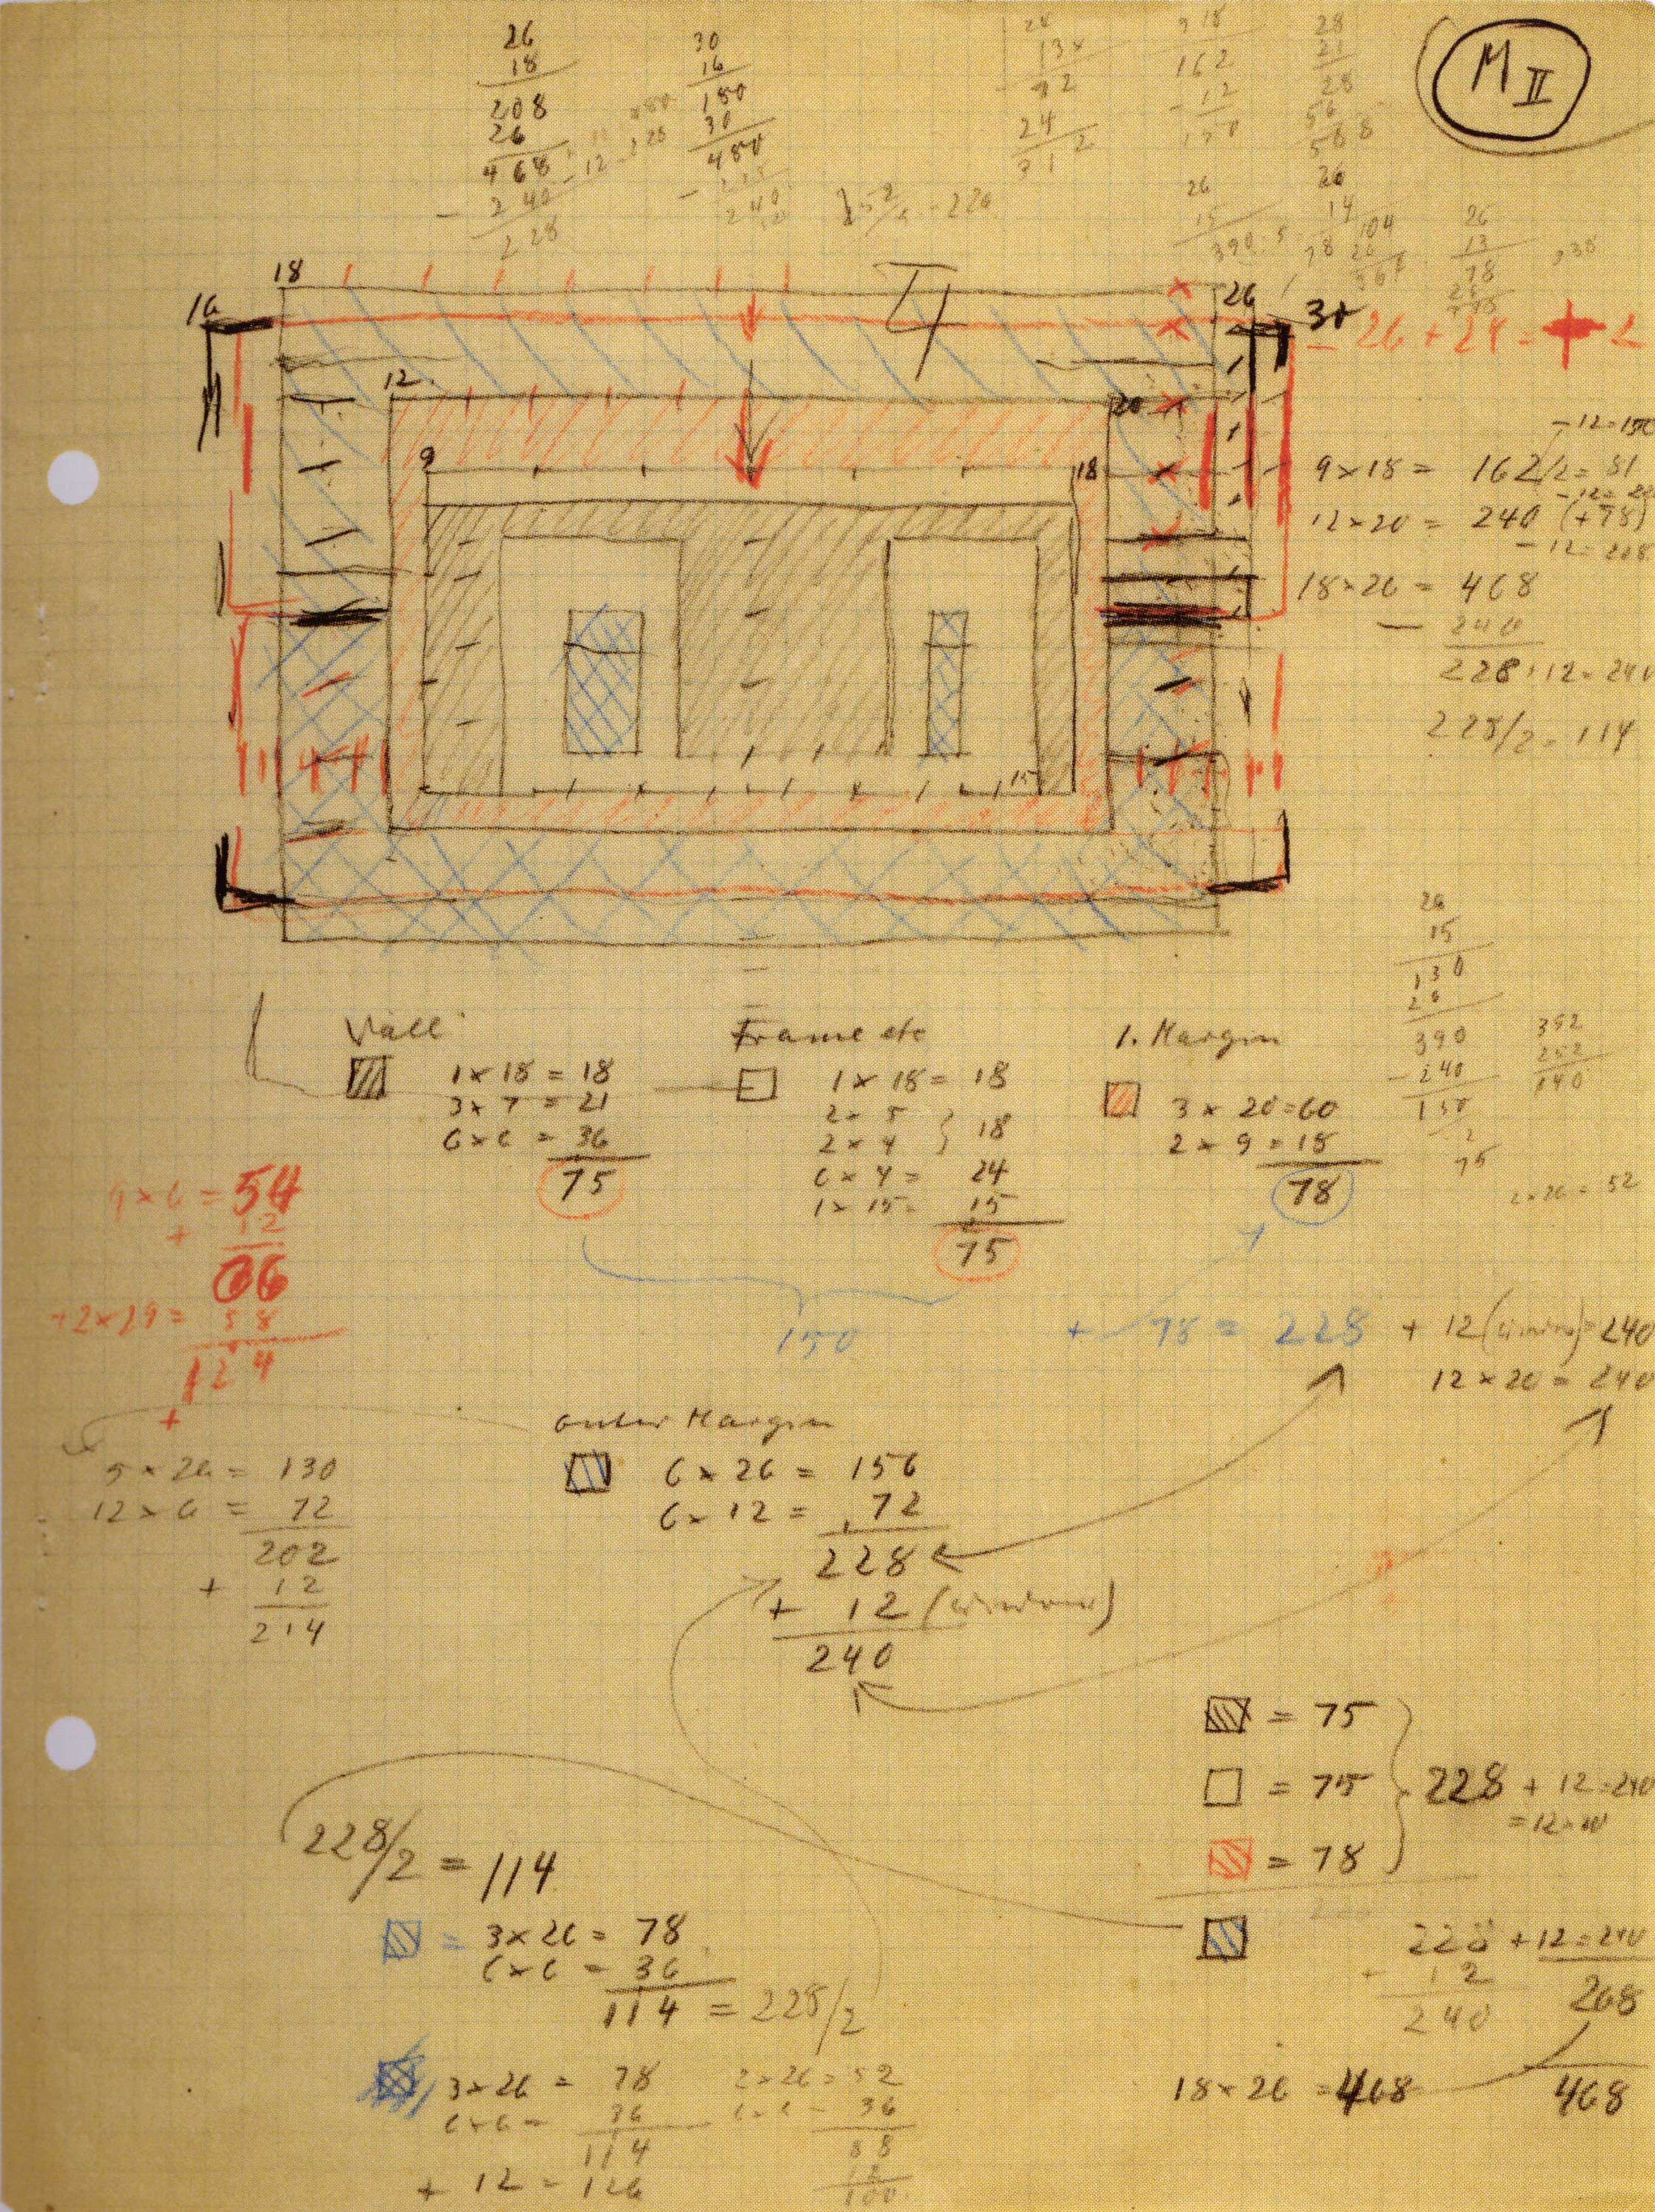 M II
26
18
208
26
468 - 12
- 240
228
30
16
180
30
480
240
24
13x
92
24
312
9 18
162
- 12
150
28
21
28
56
588
26
15
390
26
14
104
26
26
13
78
16
18
26
30
12
20
9
18
15
- 26 + 24 = + 2
- 12 = 150
9 x 18 = 162/2 = 81
12 x 20 = 240 (+78)
- 12 = 228
18 x 26 = 468
- 240
228 + 12 = 240
228/2 = 114
26
15
130
26
390
- 240
150
2
75
352
252
140
2 x 26 = 52
Wall
1 x 18 = 18
3 x 7 = 21
6 x 6 = 36
75
Frame etc
1 x 18 = 18
2 x 5
2 x 4 } 18
6 x 4 = 24
1 x 15 = 15
75
1. Margin
3 x 20 = 60
2 x 9 = 18
78
9 x 6 = 54
+ 12
66
+ 2 x 29 = 58
124
+
150
+ 78 = 228 + 12 (window) = 240
12 x 20 = 240
5 x 26 = 130
12 x 6 = 72
202
+ 12
214
outer Margin
6 x 26 = 156
6 x 12 = 72
228
+ 12 (window)
240
= 75
= 75 } 228 + 12 = 240
= 12 x 20
= 78
228/2 = 114
= 3 x 26 = 78
6 x 6 = 36
114 = 228/2
228 + 12 = 240
+ 12
240
268
3 x 26 = 78
6 x 6 = 36
114
+ 12 = 126
2 x 26 = 52
6 x 6 = 36
88
12
100
18 x 26 = 468
468